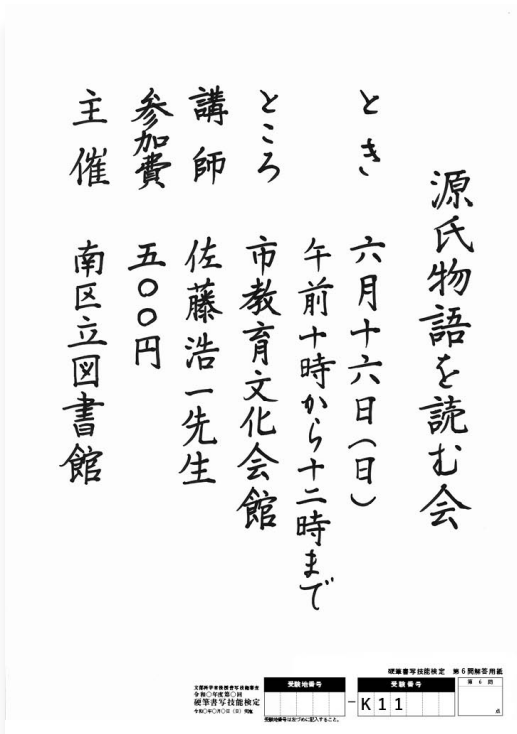 源氏物語を読む会
とき 六月十六日(日)
午前十時から十二時まで
ところ 市教育文化会館
講師 佐藤浩一先生
参加費 五〇〇円
主催 南区立図書館
硬筆書写技能検定 第6問解答用紙
文部科学省後援書写技能審査
令和〇年度第〇回
硬筆書写技能検定
令和〇年〇月〇日(日)実施
受験地番号
受験番号
第 6 問
— K11
点
受験地番号は左づめに記入すること。